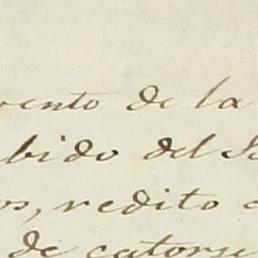 vento de la
bido del Se
os, redito
de catorse